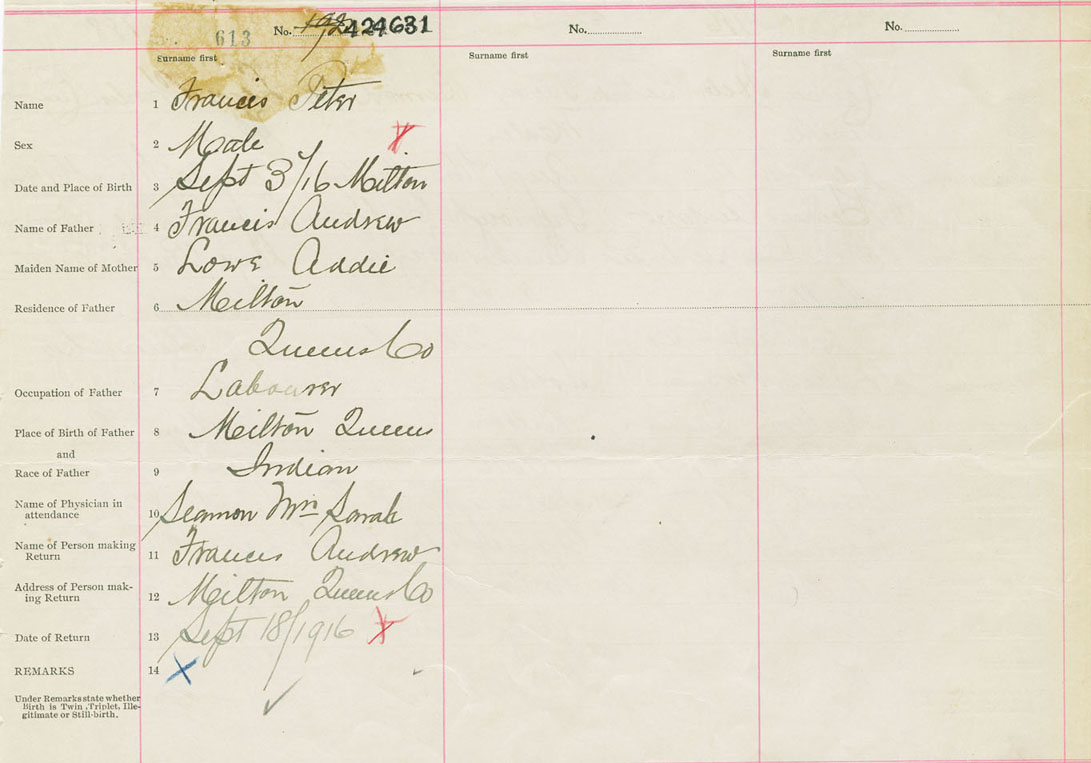 613 No. 424631 No. No.
Surname first Surname first Surname first
Name 1 Francis Peter
Sex 2 Male
Date and Place of Birth 3 Sept 3/16 Milton
Name of Father 4 Francis Andrew
Maiden Name of Mother 5 Lowe Addie
Residence of Father 6 Milton
Queens Co
Occupation of Father 7 Labourer
Place of Birth of Father 8 Milton Queens
and
Race of Father 9 Indian
Name of Physician in
attendance 10 Seamon Mrs Sarah
Name of Person making
Return 11 Francis Andrew
Address of Person mak-
ing Return 12 Milton Queens Co
Date of Return 13 Sept 18/1916
REMARKS 14
Under Remarks state whether
Birth is Twin, Triplet, Ille-
gitimate or Still-birth.